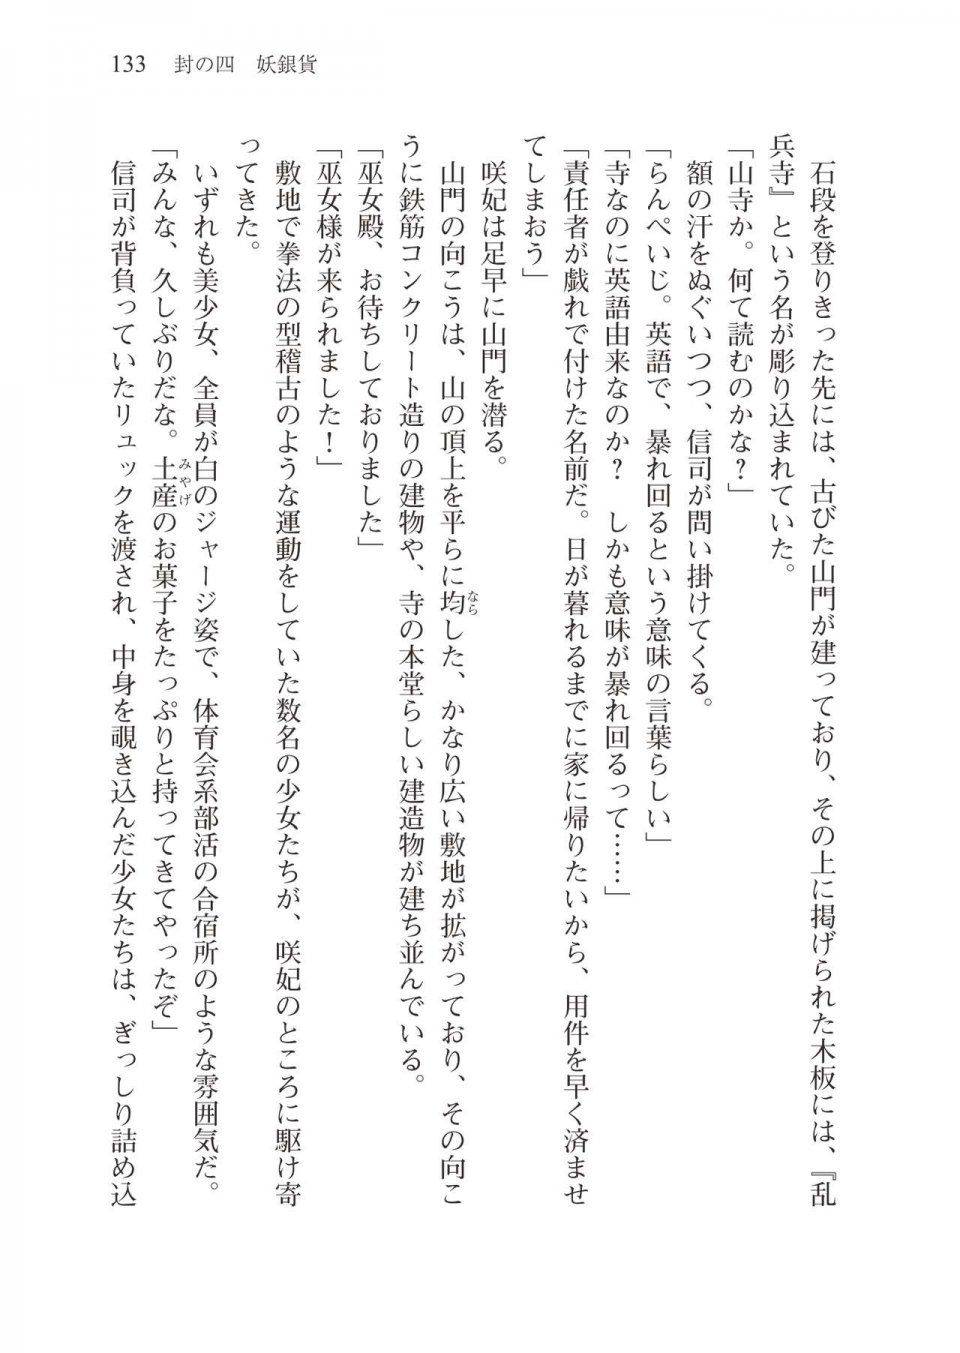 133　封の四　妖銀貨
　石段を登りきった先には、古びた山門が建っており、その上に掲げられた木板には、『乱
兵寺』という名が彫り込まれていた。
「山寺か。何て読むのかな？」
　額の汗をぬぐいつつ、信司が問い掛けてくる。
「らんぺいじ。英語で、暴れ回るという意味の言葉らしい」
「寺なのに英語由来なのか？　しかも意味が暴れ回るって……」
「責任者が戯れで付けた名前だ。日が暮れるまでに家に帰りたいから、用件を早く済ませ
てしまおう」
　咲妃は足早に山門を潜る。
　山門の向こうは、山の頂上を平らに均した、かなり広い敷地が拡がっており、その向こ
なら
うに鉄筋コンクリート造りの建物や、寺の本堂らしい建造物が建ち並んでいる。
「巫女殿、お待ちしておりました」
「巫女様が来られました！」
　敷地で拳法の型稽古のような運動をしていた数名の少女たちが、咲妃のところに駆け寄
ってきた。
　いずれも美少女、全員が白のジャージ姿で、体育会系部活の合宿所のような雰囲気だ。
「みんな、久しぶりだな。土産のお菓子をたっぷりと持ってきてやったぞ」
みやげ
　信司が背負っていたリュックを渡され、中身を覗き込んだ少女たちは、ぎっしり詰め込